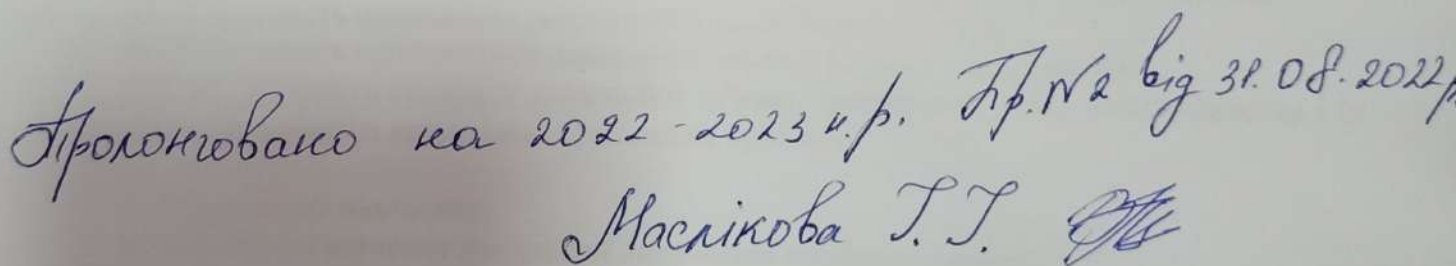 Пролонговано на 2022-2023 н.р. Пр.№2 від 31.08.2022р
Маслікова І.І.